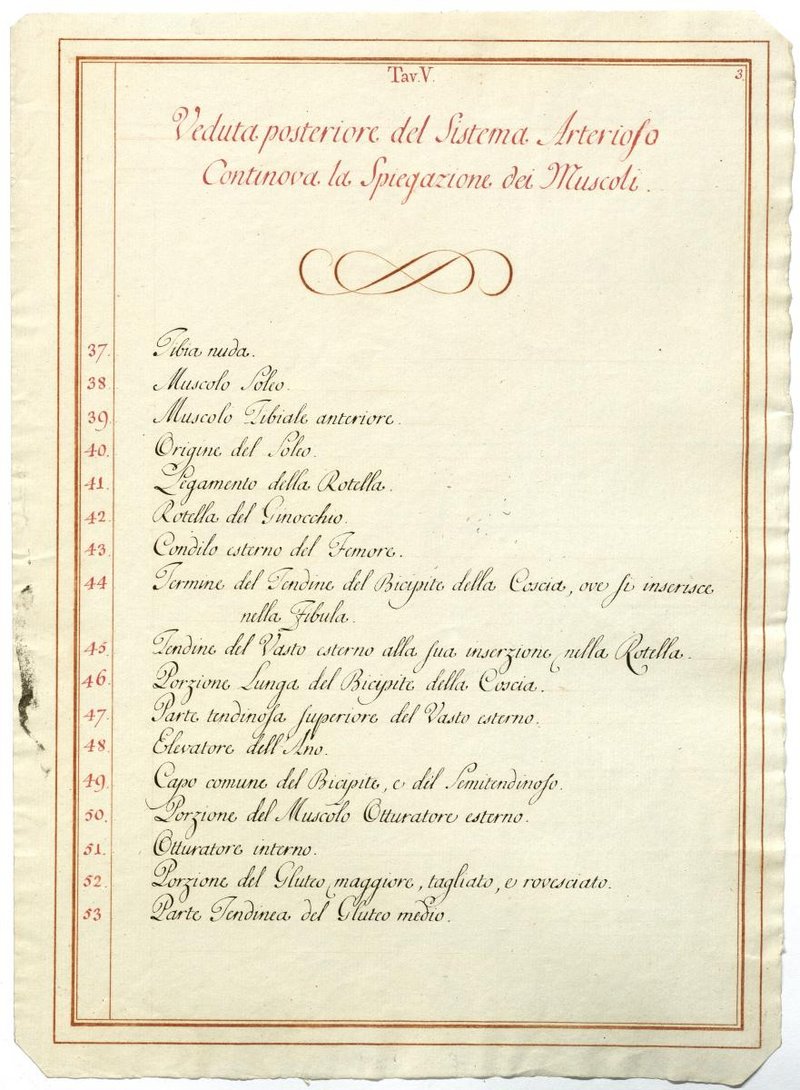 Tav. V. 3.
Veduta posteriore del Sistema Arterioso
Continova la Spiegazione dei Muscoli.
37. Tibia nuda.
38. Muscolo Soleo.
39. Muscolo Tibiale anteriore.
40. Origine del Soleo.
41. Legamento della Rotella.
42. Rotella del Ginocchio.
43. Condilo esterno del Femore.
44 Termine del Tendine del Bicipite della Coscia, ove si inserisce
nella Fibula.
45. Tendine del Vasto esterno alla sua inserzione nella Rotella.
46. Porzione Lunga del Bicipite della Coscia.
47. Parte tendinosa superiore del Vasto esterno.
48. Elevatore dell'Ano.
49. Capo comune del Bicipite, e del Semitendinoso.
50. Porzione del Muscolo Otturatore esterno.
51. Otturatore interno.
52. Porzione del Gluteo maggiore, tagliato, e rovesciato.
53 Parte Tendinea del Gluteo medio.